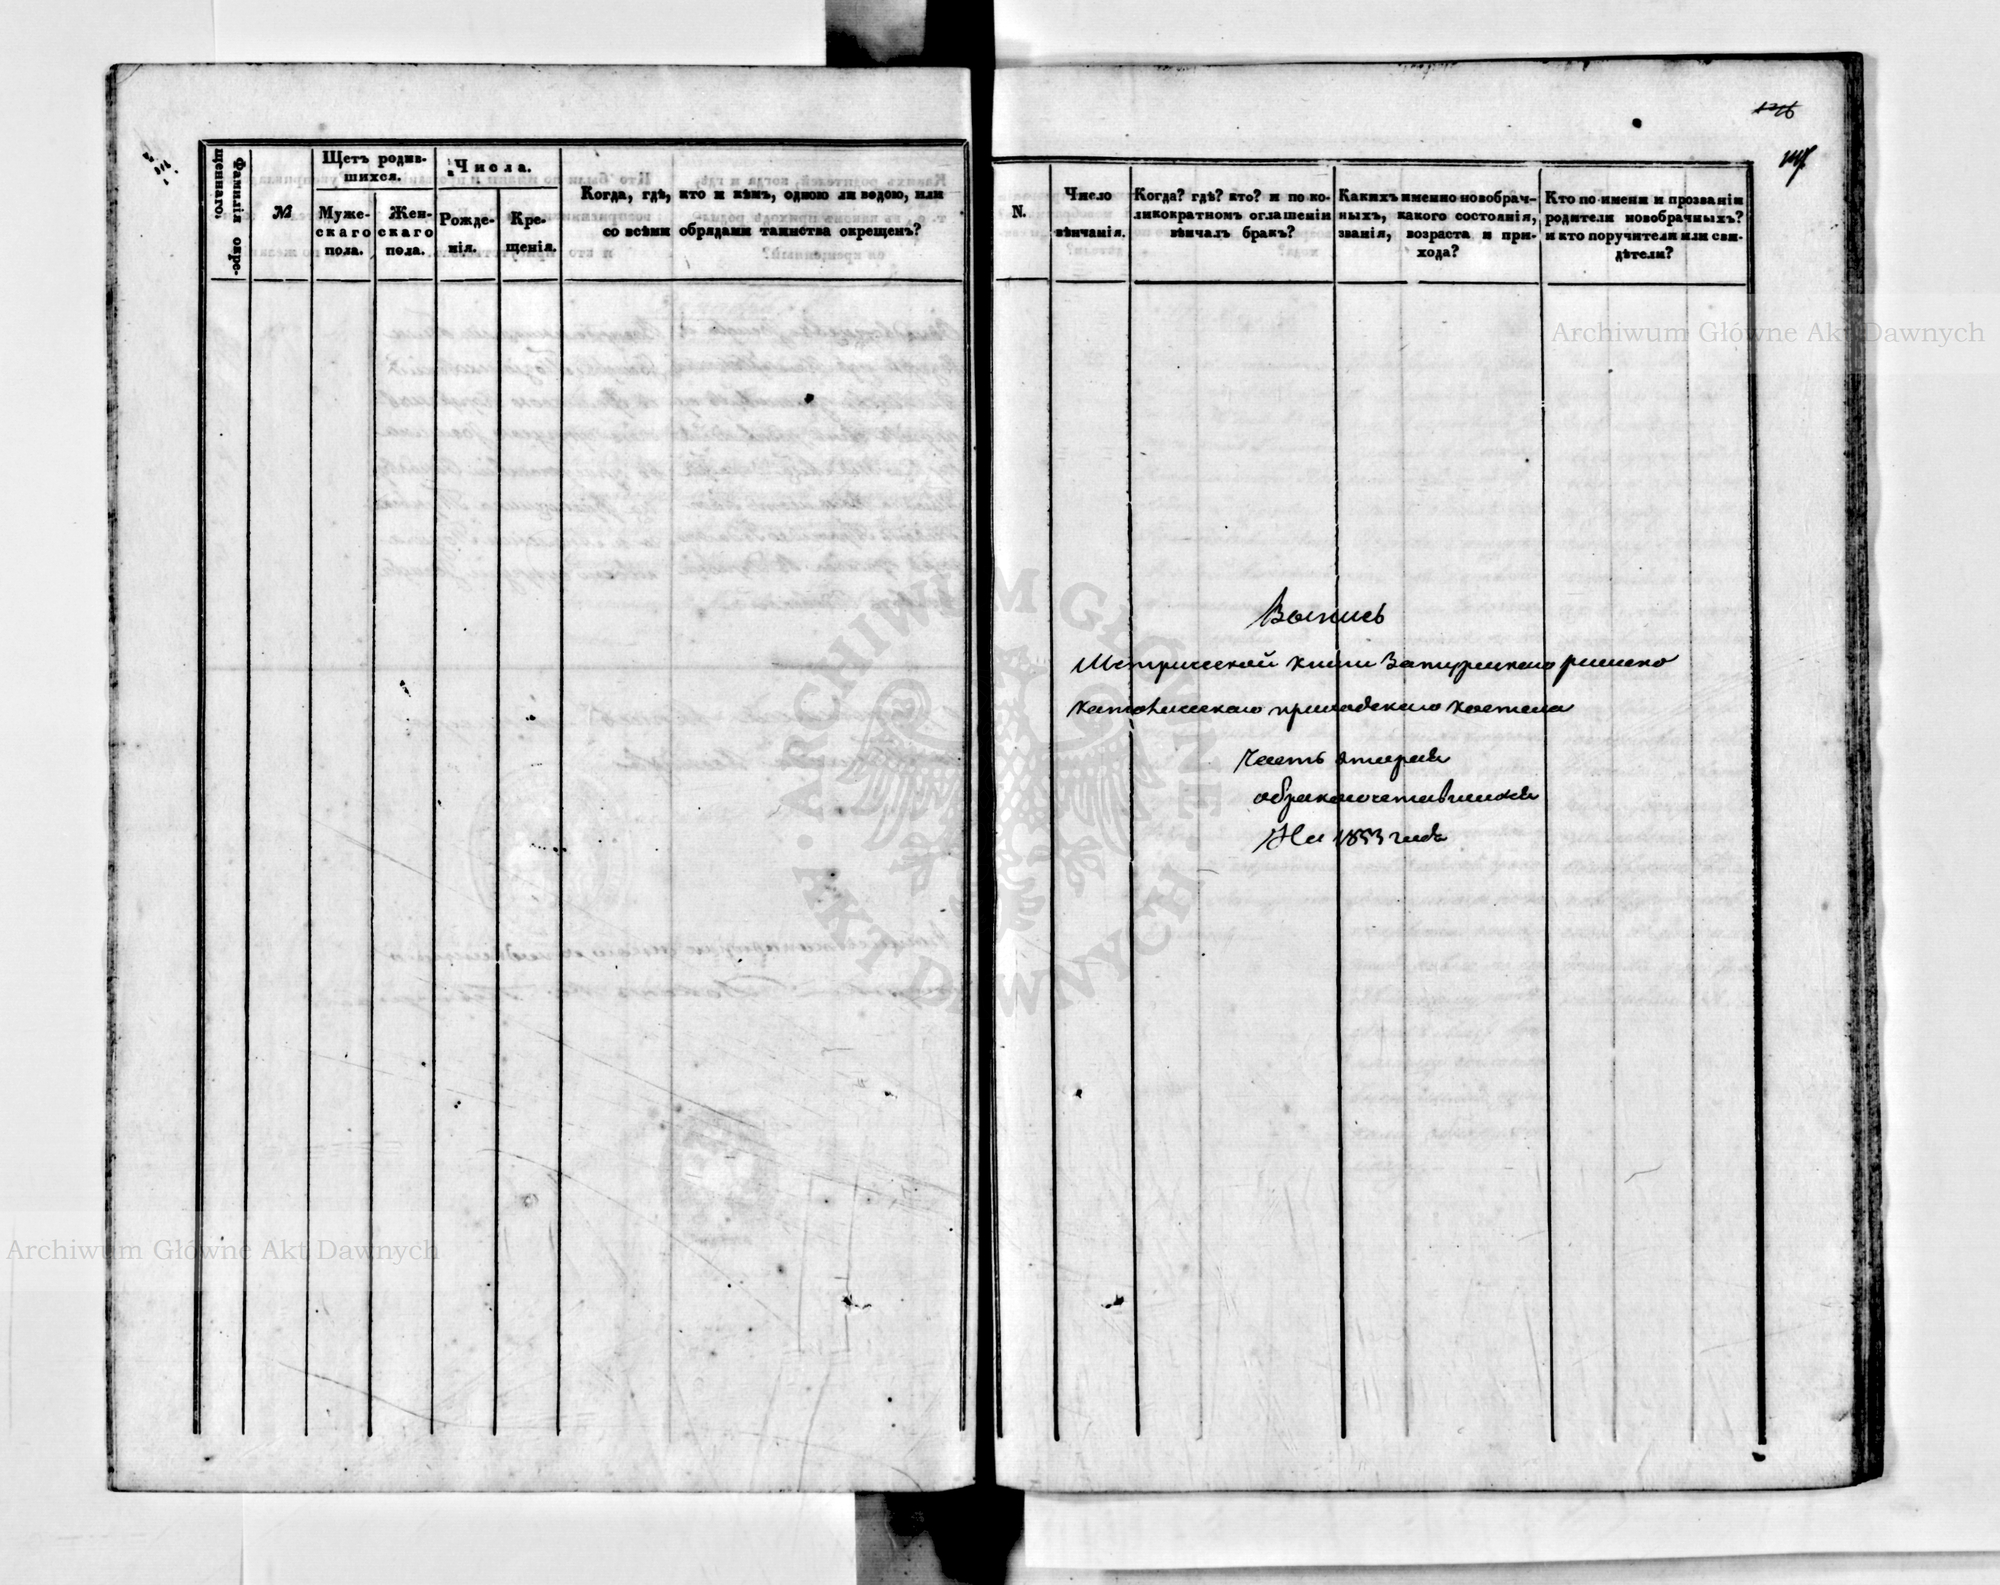 Фамилія окре-
щеннаго.
№
Щетъ родив-
шихся.
Муже-
скаго
пола.
Жен-
скаго
пола.
Числа.
Рожде-
нія.
Кре-
щенія.
Когда, гдѣ, кто и кѣмъ, одною ли водою, или
со всѣми обрядами таинства окрещенъ?
126
N.
Число
вѣнчанія.
Когда? гдѣ? кто? и по ко-
ликократномъ оглашеніи
вѣнчалъ бракъ?
Какихъ именно новобрач-
ныхъ, какого состоянія,
званія, возраста и при-
хода?
Кто по имени и прозванію
родители новобрачныхъ?
и кто поручители или сви-
дѣтели?
Archiwum Główne Akt Dawnych
ARCHIWUM GŁÓWNE AKT DAWNYCH
Выпись
Метрической книги Затурецкаго римско
католическаго приходскаго костела
Часть вторая
обракосочетавшихся
На 1853 годъ
Archiwum Główne Akt Dawnych